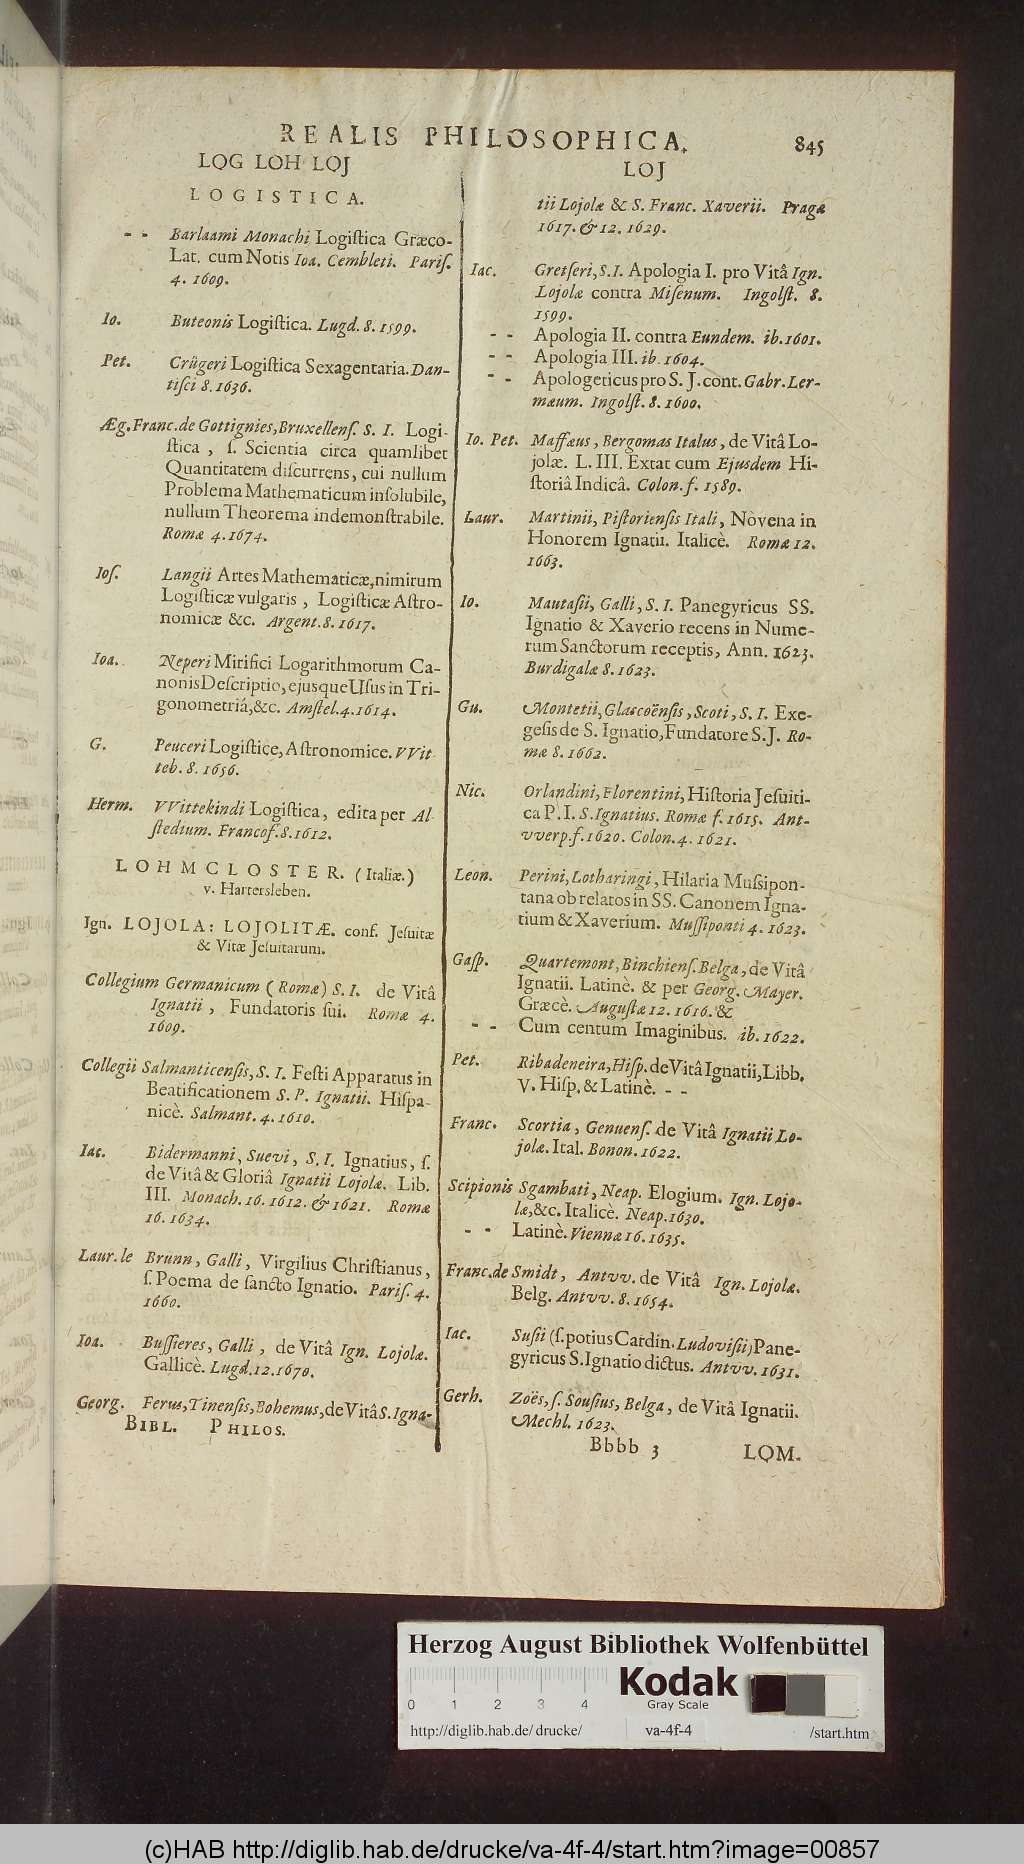 REALIS PHILOSOPHICA. 845
LOG LOH LOJ
LOGISTICA.
- - Barlaami Monachi Logiſtica Græco-
Lat. cum Notis Ioa. Cembleti. Pariſ.
4. 1609.
Io. Buteonis Logiſtica. Lugd. 8. 1599.
Pet. Crügeri Logiſtica Sexagentaria. Dan-
tiſci 8. 1636.
Æg. Franc. de Gottignies, Bruxellenſ. S. I. Logi-
ſtica, ſ. Scientia circa quamlibet
Quantitatem diſcurrens, cui nullum
Problema Mathematicum inſolubile,
nullum Theorema indemonſtrabile.
Romæ 4. 1674.
Ioſ. Langii Artes Mathematicæ, nimirum
Logiſticæ vulgaris, Logiſticæ Aſtro-
nomicæ &c. Argent. 8. 1617.
Ioa. Neperi Mirifici Logarithmorum Ca-
nonis Deſcriptio, ejusque Uſus in Tri-
gonometriâ, &c. Amſtel. 4. 1614.
G. Peuceri Logiſtice, Aſtronomice. VVit-
teb. 8. 1656.
Herm. VVittekindi Logiſtica, edita per Al
ſtedium. Francof. 8. 1612.
LOHMCLOSTER. (Italiæ.)
v. Hartersleben.
Ign. LOJOLA: LOJOLITÆ. conf. Jeſuitæ
& Vitæ Jeſuitarum.
Collegium Germanicum (Romæ) S. I. de Vitâ
Ignatii, Fundatoris ſui. Romæ 4.
1609.
Collegii Salmanticenſis, S. I. Feſti Apparatus in
Beatificationem S. P. Ignatii. Hiſpa-
nicè. Salmant. 4. 1610.
Iac. Bidermanni, Suevi, S. I. Ignatius, ſ.
de Vitâ & Gloriâ Ignatii Lojolæ. Lib.
III. Monach. 16. 1612. & 1621. Romæ
16. 1634.
Laur. le Brunn, Galli, Virgilius Chriſtianus,
ſ. Poema de ſancto Ignatio. Pariſ. 4.
1660.
Ioa. Buſſieres, Galli, de Vitâ Ign. Lojolæ.
Gallicè. Lugd. 12. 1670.
Georg. Ferus, Tinenſis, Bohemus, de Vitâ S. Igna-
BIBL. PHILOS.
LOJ
tii Lojolæ & S. Franc. Xaverii. Pragæ
1617. & 12. 1629.
Iac. Gretſeri, S. I. Apologia I. pro Vitâ Ign.
Lojolæ contra Miſenum. Ingolſt. 8.
1599.
- - Apologia II. contra Eundem. ib. 1601.
- - Apologia III. ib. 1604.
- - Apologeticus pro S. J. cont. Gabr. Ler-
mæum. Ingolſt. 8. 1600.
Io. Pet. Maffæus, Bergomas Italus, de Vitâ Lo-
jolæ. L. III. Extat cum Ejusdem Hi-
ſtoriâ Indicâ. Colon. f. 1589.
Laur. Martinii, Piſtorienſis Itali, Novena in
Honorem Ignatii. Italicè. Romæ 12.
1663.
Io. Mautaſii, Galli, S. I. Panegyricus SS.
Ignatio & Xaverio recens in Nume-
rum Sanctorum receptis, Ann. 1623.
Burdigalæ 8. 1623.
Gu. Montetii, Glascoënſis, Scoti, S. I. Exe-
geſis de S. Ignatio, Fundatore S. J. Ro-
mæ 8. 1662.
Nic. Orlandini, Florentini, Hiſtoria Jeſuiti-
ca P. I. S. Ignatius. Romæ f. 1615. Ant-
vverp. f. 1620. Colon. 4. 1621.
Leon. Perini, Lotharingi, Hilaria Muſsipon-
tana ob relatos in SS. Canonem Igna-
tium & Xaverium. Muſſiponti 4. 1623.
Gaſp. Quartemont, Binchienſ. Belga, de Vitâ
Ignatii. Latinè. & per Georg. Mayer.
Græcè. Auguſtæ 12. 1616. &
- - Cum centum Imaginibus. ib. 1622.
Pet. Ribadeneira, Hiſp. de Vitâ Ignatii, Libb.
V. Hiſp. & Latinè. - -
Franc. Scortia, Genuenſ. de Vitâ Ignatii Lo-
jolæ. Ital. Bonon. 1622.
Scipionis Sgambati, Neap. Elogium. Ign. Lojo-
læ, &c. Italicè. Neap. 1630.
- - Latinè. Viennæ 16. 1635.
Franc. de Smidt, Antvv. de Vitâ Ign. Lojolæ.
Belg. Antvv. 8. 1654.
Iac. Suſii (ſ. potius Cardin. Ludoviſii) Pane-
gyricus S. Ignatio dictus. Antvv. 1631.
Gerh. Zoës, ſ. Souſius, Belga, de Vitâ Ignatii.
Mechl. 1623.
Bbbb 3 LOM.
Herzog August Bibliothek Wolfenbüttel
Kodak
Gray Scale
0 1 2 3 4
http://diglib.hab.de/drucke/ va-4f-4 /start.htm
(c)HAB http://diglib.hab.de/drucke/va-4f-4/start.htm?image=00857